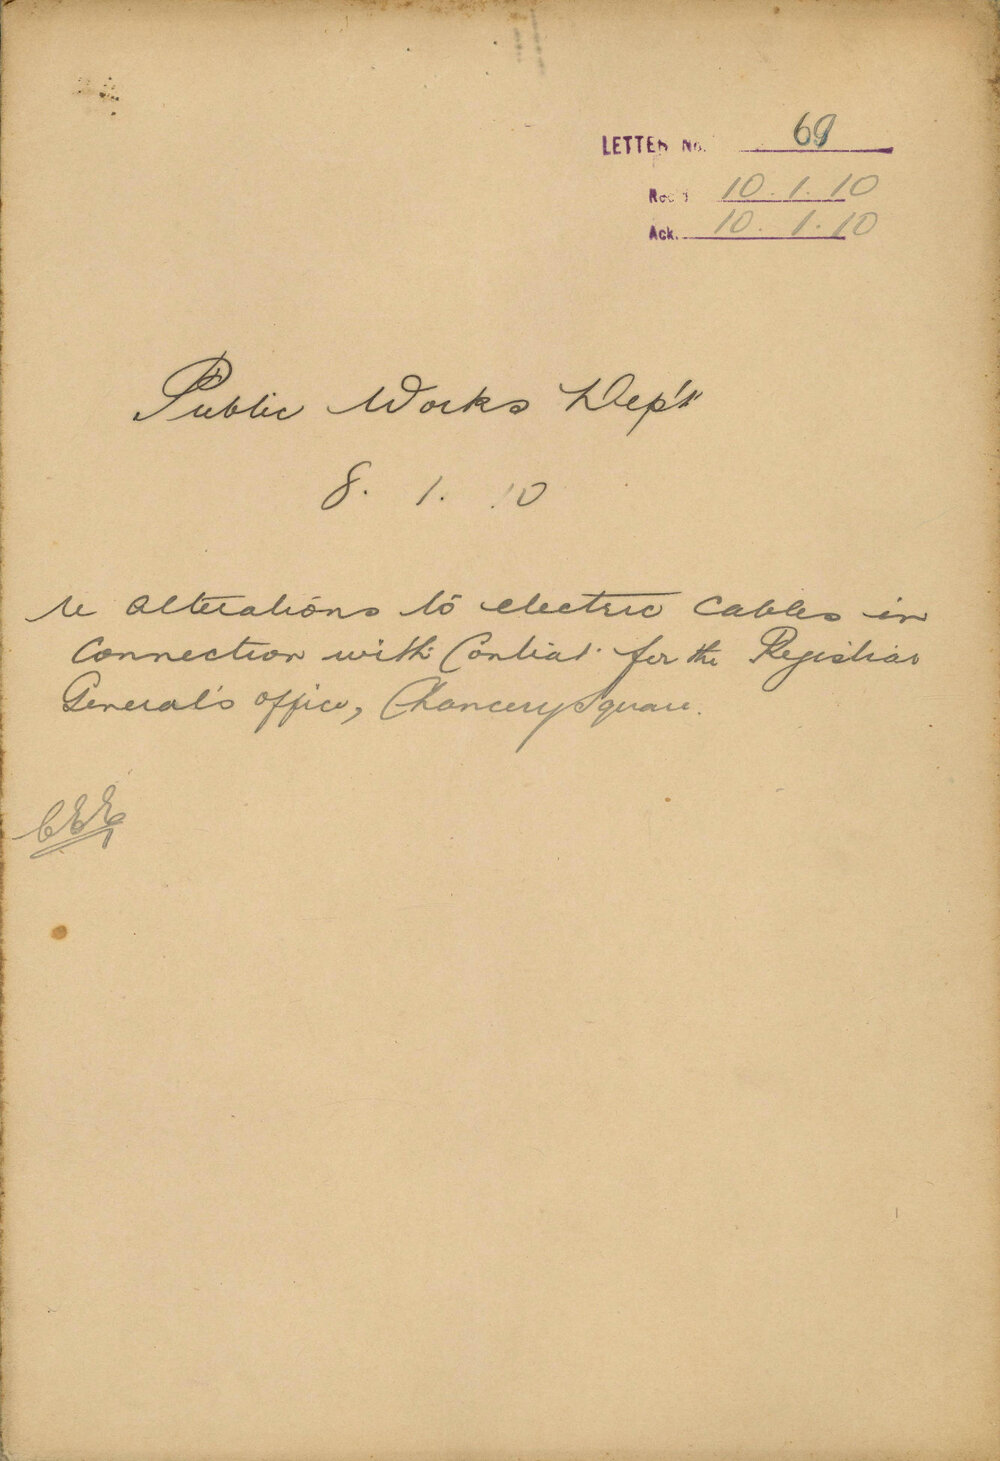 LETTER No. 69
Rec'd 10.1.10
Ack. 10.1.10
Public Works Dep't
8.1.10
re alterations to electric cables in
connection with Contract for the Registrar
General's office, Chancery Square.
CEE